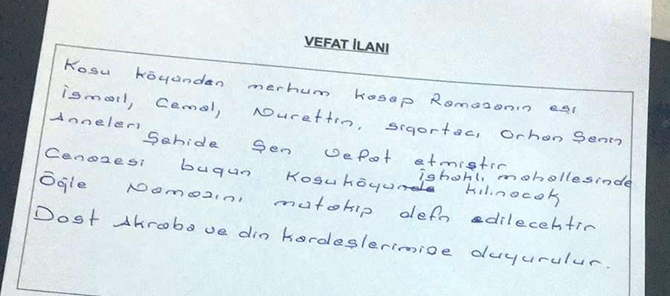 VEFAT İLANI
Kosu köyünden merhum kasap Ramazanın eşi
İsmail, Cemal, Nurettin, sigortacı Orhan Şenin
Anneleri Şehide Şen vefat etmiştir
Cenazesi bugün Kosuköyünde İshaklı mahallesinde kılınacak
Öğle Namazını mutakip defn edilecektir
Dost Akraba ve din kardeşlerimize duyurulur.